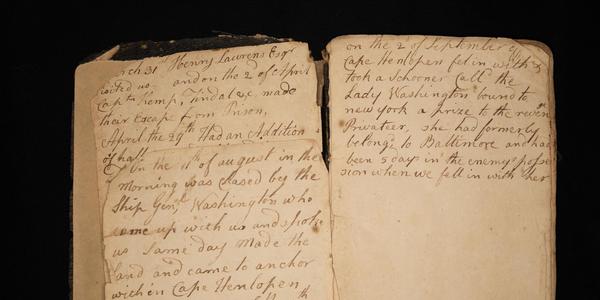 arch 31st Henry Laurens Esqr
visited us and on the 2 of April
Captn Kemp, Tindal &c, made
their Escape from Prison,
April the 29th Had an Addition
of half
On the of august in the
morning was chased by the
Ship Genl Washington who
come up with us and spoke
us same day made the
land and came to anchor
within Cape Henlopen
on the 2d of September off
Cape Henlopen fel in with &
took a schooner Call'd the
Lady Washington bound to
new york a prize to the
Privateer, she had formerly
belong'd to Baltimore and had
been 5 day in the enemys posses
sion when we fell in with her